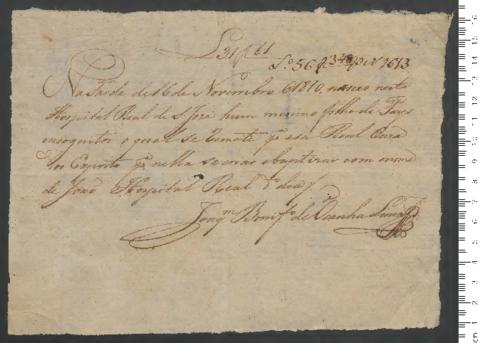 L.º 31 f 61
L.º 56 f 348 v N 1613
Na Tarde de 16 de Novembro de 1810, nasceo neste
Hospital Real de S. José hum menino filho de Pays
incognitos o qual se remete pª esa Real Caza
dos Expostos pª nella se criar e baptizar com o nome
de João Hospital Real
Joaqm Bonifº de